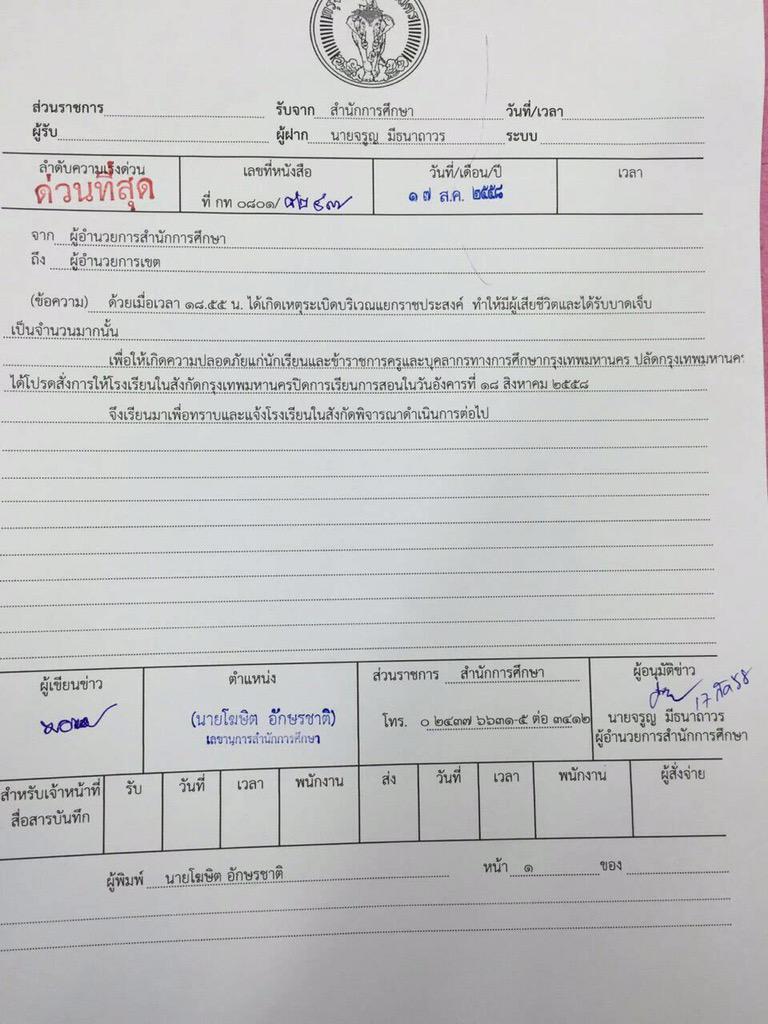 ส่วนราชการ รับจาก สำนักการศึกษา วันที่/เวลา
ผู้รับ ผู้ฝาก นายจรูญ มีธนาถาวร ระบบ
ลำดับความเร่งด่วน เลขที่หนังสือ วันที่/เดือน/ปี เวลา
ด่วนที่สุด ที่ กท ๐๘๐๑/ ๑๗ ส.ค. ๒๕๕๘
จาก ผู้อำนวยการสำนักการศึกษา
ถึง ผู้อำนวยการเขต
(ข้อความ) ด้วยเมื่อเวลา ๑๘.๕๕ น. ได้เกิดเหตุระเบิดบริเวณแยกราชประสงค์ ทำให้มีผู้เสียชีวิตและได้รับบาดเจ็บ
เป็นจำนวนมากนั้น
เพื่อให้เกิดความปลอดภัยแก่นักเรียนและข้าราชการครูและบุคลากรทางการศึกษากรุงเทพมหานคร ปลัดกรุงเทพมหานคร
ได้โปรดสั่งการให้โรงเรียนในสังกัดกรุงเทพมหานครปิดการเรียนการสอนในวันอังคารที่ ๑๘ สิงหาคม ๒๕๕๘
จึงเรียนมาเพื่อทราบและแจ้งโรงเรียนในสังกัดพิจารณาดำเนินการต่อไป
ผู้เขียนข่าว ตำแหน่ง ส่วนราชการ สำนักการศึกษา ผู้อนุมัติข่าว
17 สค 58
(นายโฆษิต อักษรชาติ) โทร. ๐ ๒๔๓๗ ๖๖๓๑-๕ ต่อ ๓๔๑๒ นายจรูญ มีธนาถาวร
เลขานุการสำนักการศึกษา ผู้อำนวยการสำนักการศึกษา
สำหรับเจ้าหน้าที่ รับ วันที่ เวลา พนักงาน ส่ง วันที่ เวลา พนักงาน ผู้สั่งจ่าย
สื่อสารบันทึก
ผู้พิมพ์ นายโฆษิต อักษรชาติ หน้า ๑ ของ